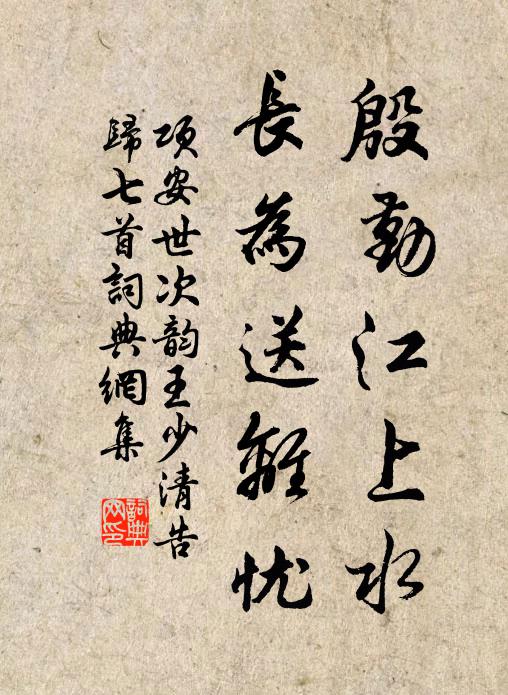 殷勤江上水
長為送離忧
項安世次韵王少清告
歸七首詞典網集
詞典网印